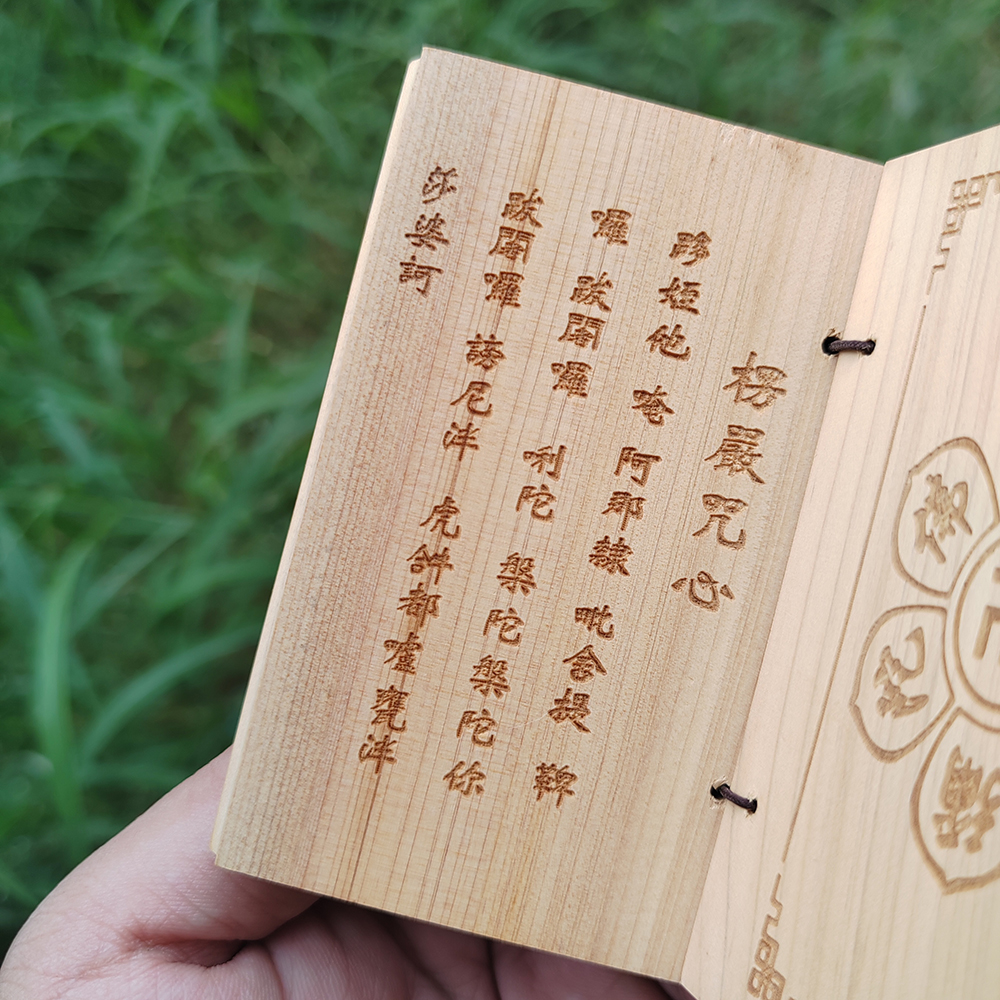 楞嚴咒心
跢姪他 唵 阿那隸 毗舍提 鞞
囉 跋闍囉 唎陀 槃陀槃陀你
跋闍囉 謗尼泮 虎𤙖都嚧甕泮
莎婆訶